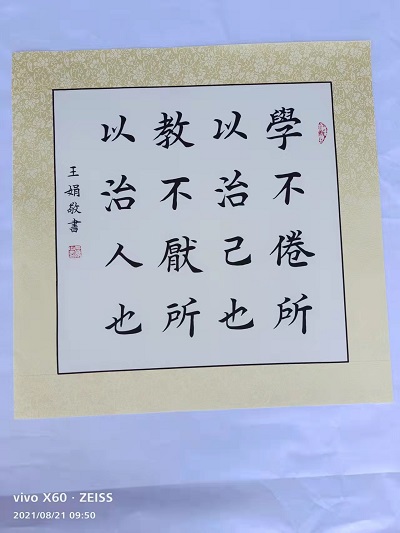 學不倦所
以治己也
教不厭所
以治人也
王娟敬書
vivo X60 · ZEISS
2021/08/21 09:50